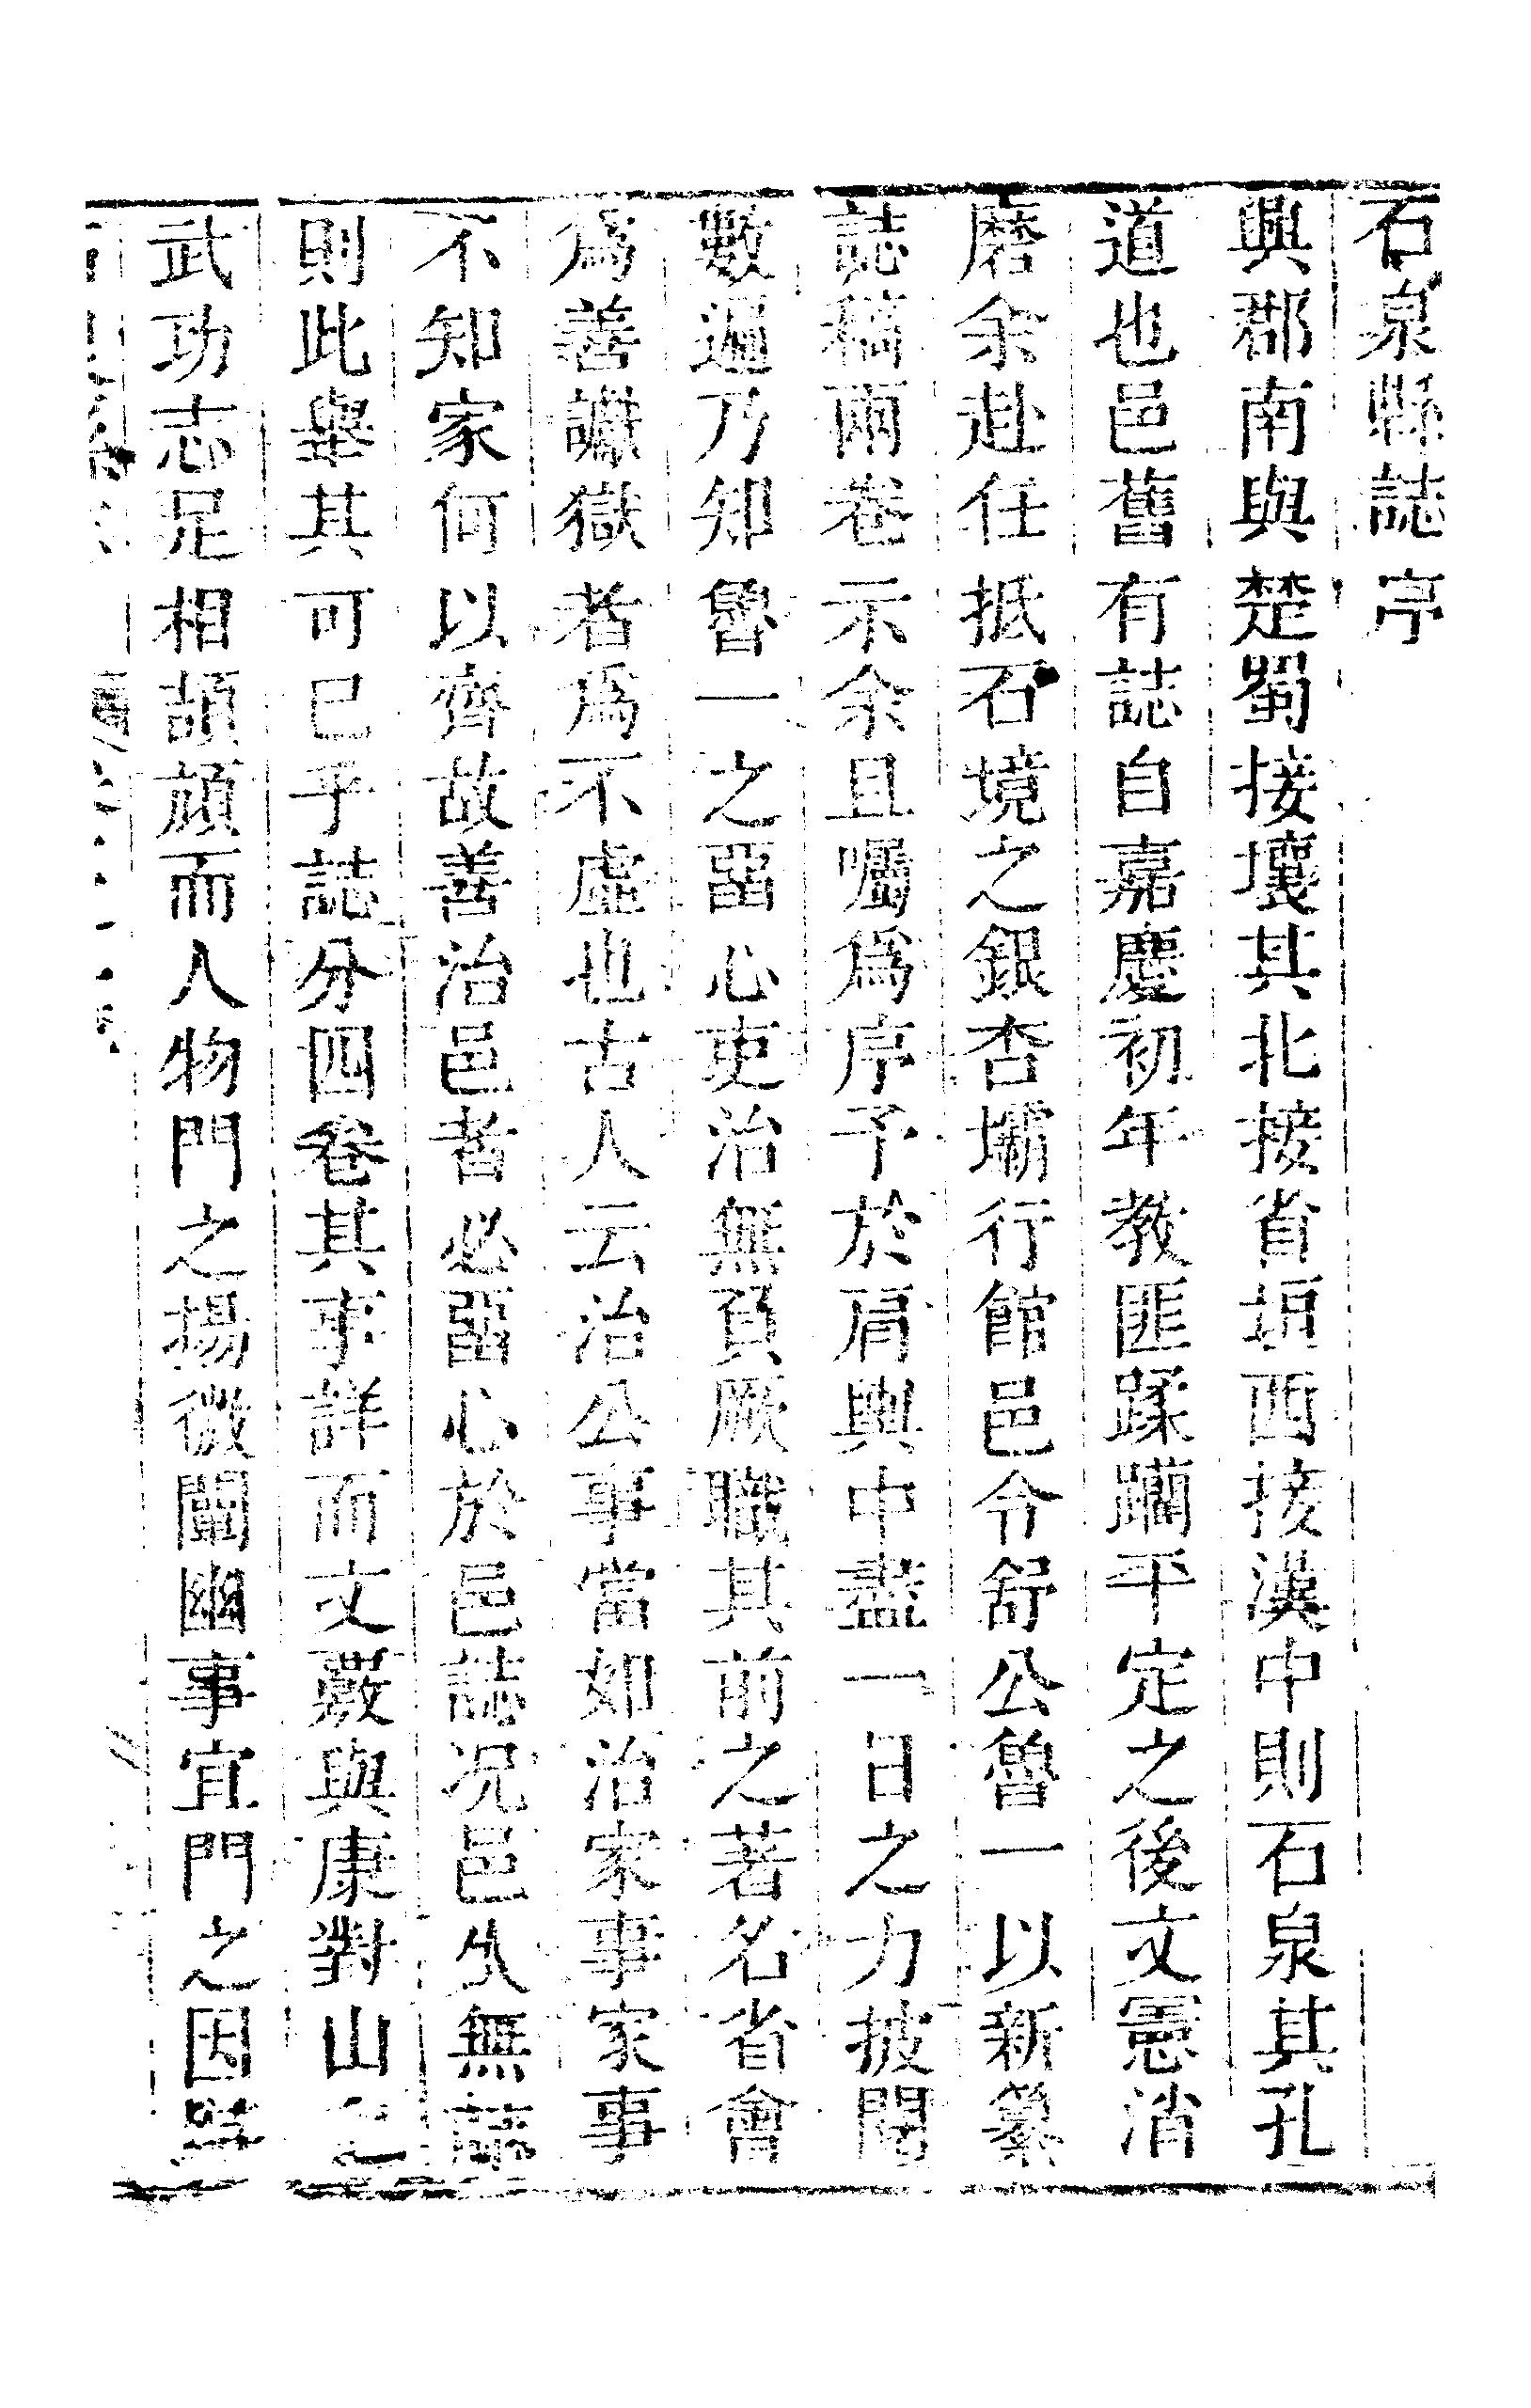 石泉縣誌序
興郡南與楚蜀接壤其北接省垣西接漢中則石泉其孔
道也邑舊有誌自嘉慶初年教匪蹂躪平定之後文憲消
磨余赴任抵石境之銀杏壩行館邑令舒公魯一以新纂
誌稿兩卷示余且囑爲序予於肩輿中盡一日之力披閱
數遍乃知魯一之畱心吏治無負厥職其前之著名省會
爲善讞獄者爲不虛也古人云治公事當如治家事家事
不知家何以齊故善治邑者必畱心於邑誌况邑久無誌
則此舉其可已乎誌分四卷其事詳而文嚴與康對山之
武功志足相頡頏而人物門之揚微闡幽事宜門之因